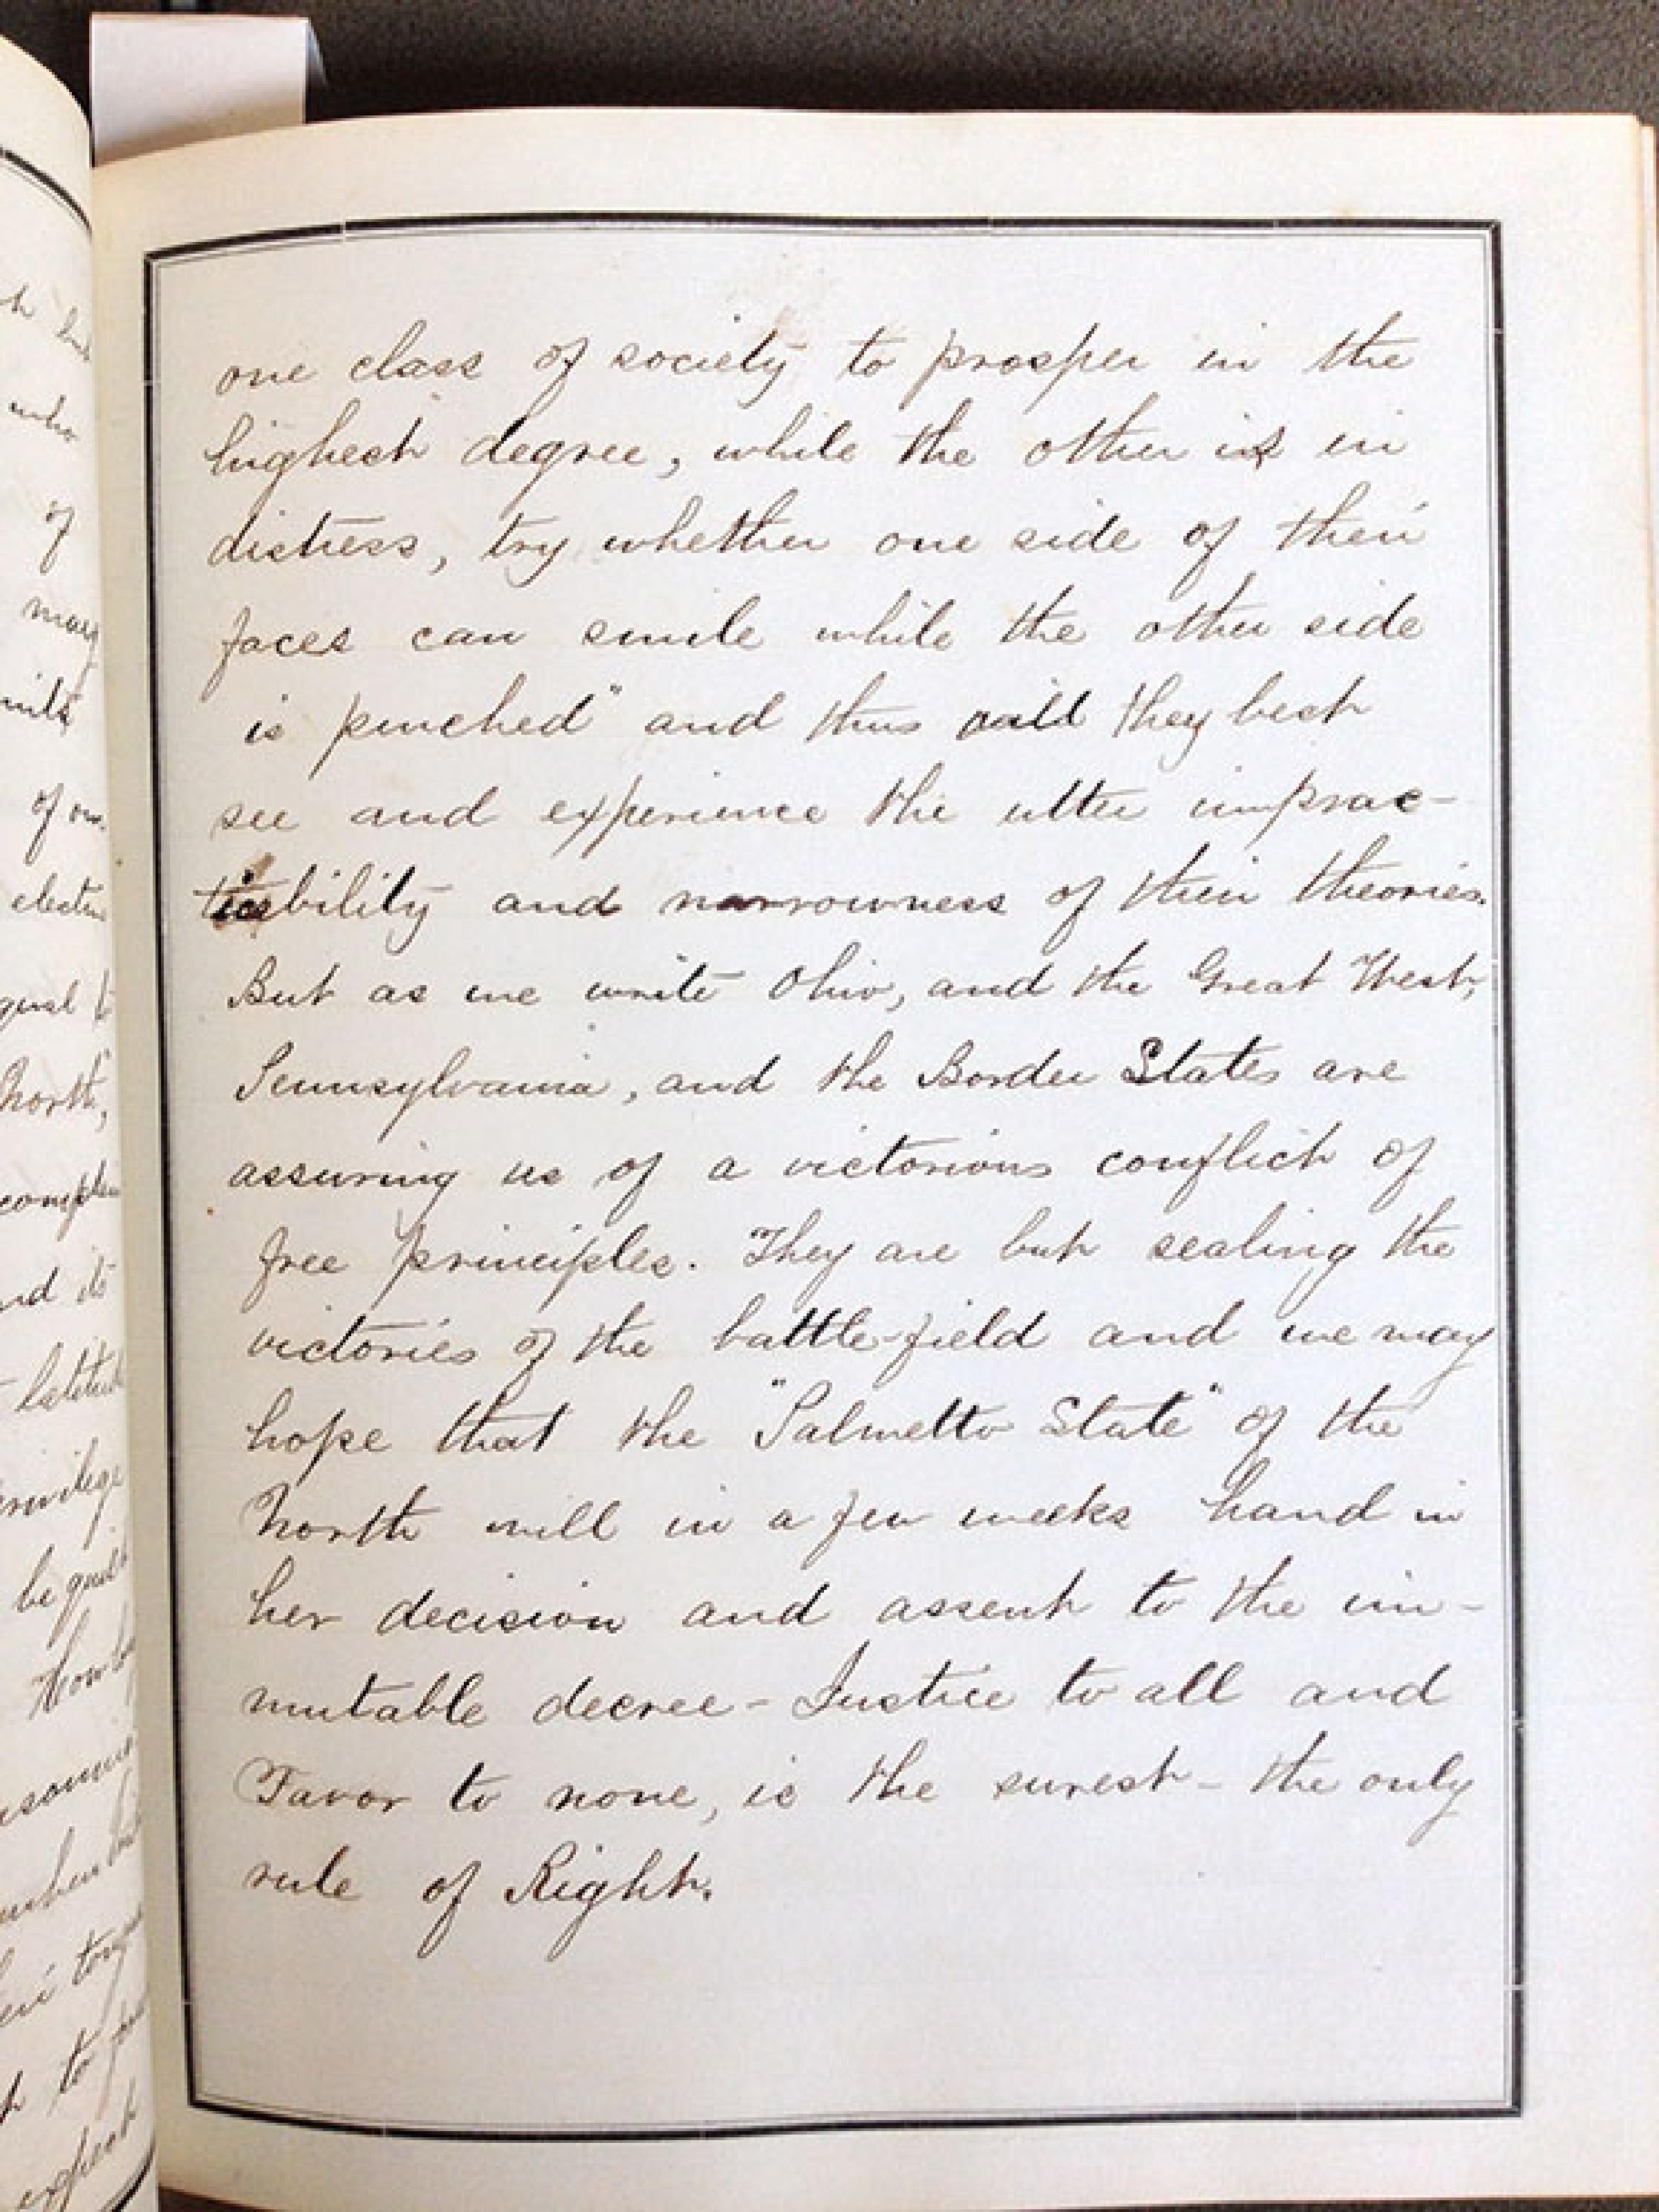 h
who
of
may
of our
North,
nd its
privilege
be guilt
when
to
expect
one class of society to prosper in the
highest degree, while the other is in
distress, try whether one side of their
faces can smile while the other side
is pinched" and thus will they best
see and experience the utter imprac-
ticability and narrowness of their theories.
But as we write Ohio, and the Great West,
Pennsylvania, and the Border States are
assuring us of a victorious conflict of
free principles. They are but sealing the
victories of the battle-field and we may
hope that the "Palmetto State" of the
North will in a few weeks hand in
her decision and assent to the im-
mutable decree - Justice to all and
Favor to none, is the surest - the only
rule of Right.